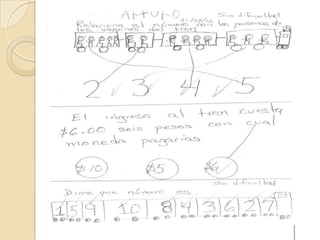 Arturo
Sin dificultad
Relaciona el número con las personas de
los vagones del tren
2 3 4 5
El ingreso al tren cuesta
$6.00 seis pesos con cual
moneda pagarías
$10 $5
Sin dificultad
Dime que número es
1 5 9 10 8 4 3 6 2 7